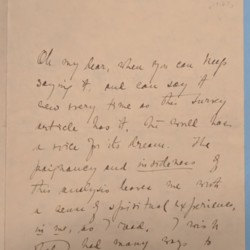 Oh my dear, when you can keep
saying it, and can say it
new every time as this Survey
article has it, ... have
a ... for its dream. The
poignancy and insideness of
this analysis leaves me with
a sense of spiritual experience,
in me, as I read. I wish
I had many ways to